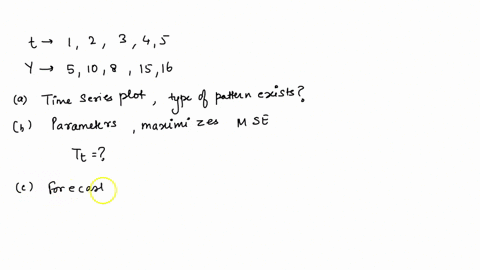 t → 1, 2, 3, 4, 5
Y → 5, 10, 8, 15, 16
(a) Time series plot, type of pattern exists?
(b) Parameters, maximizes MSE
Tt = ?
(c) Forecast